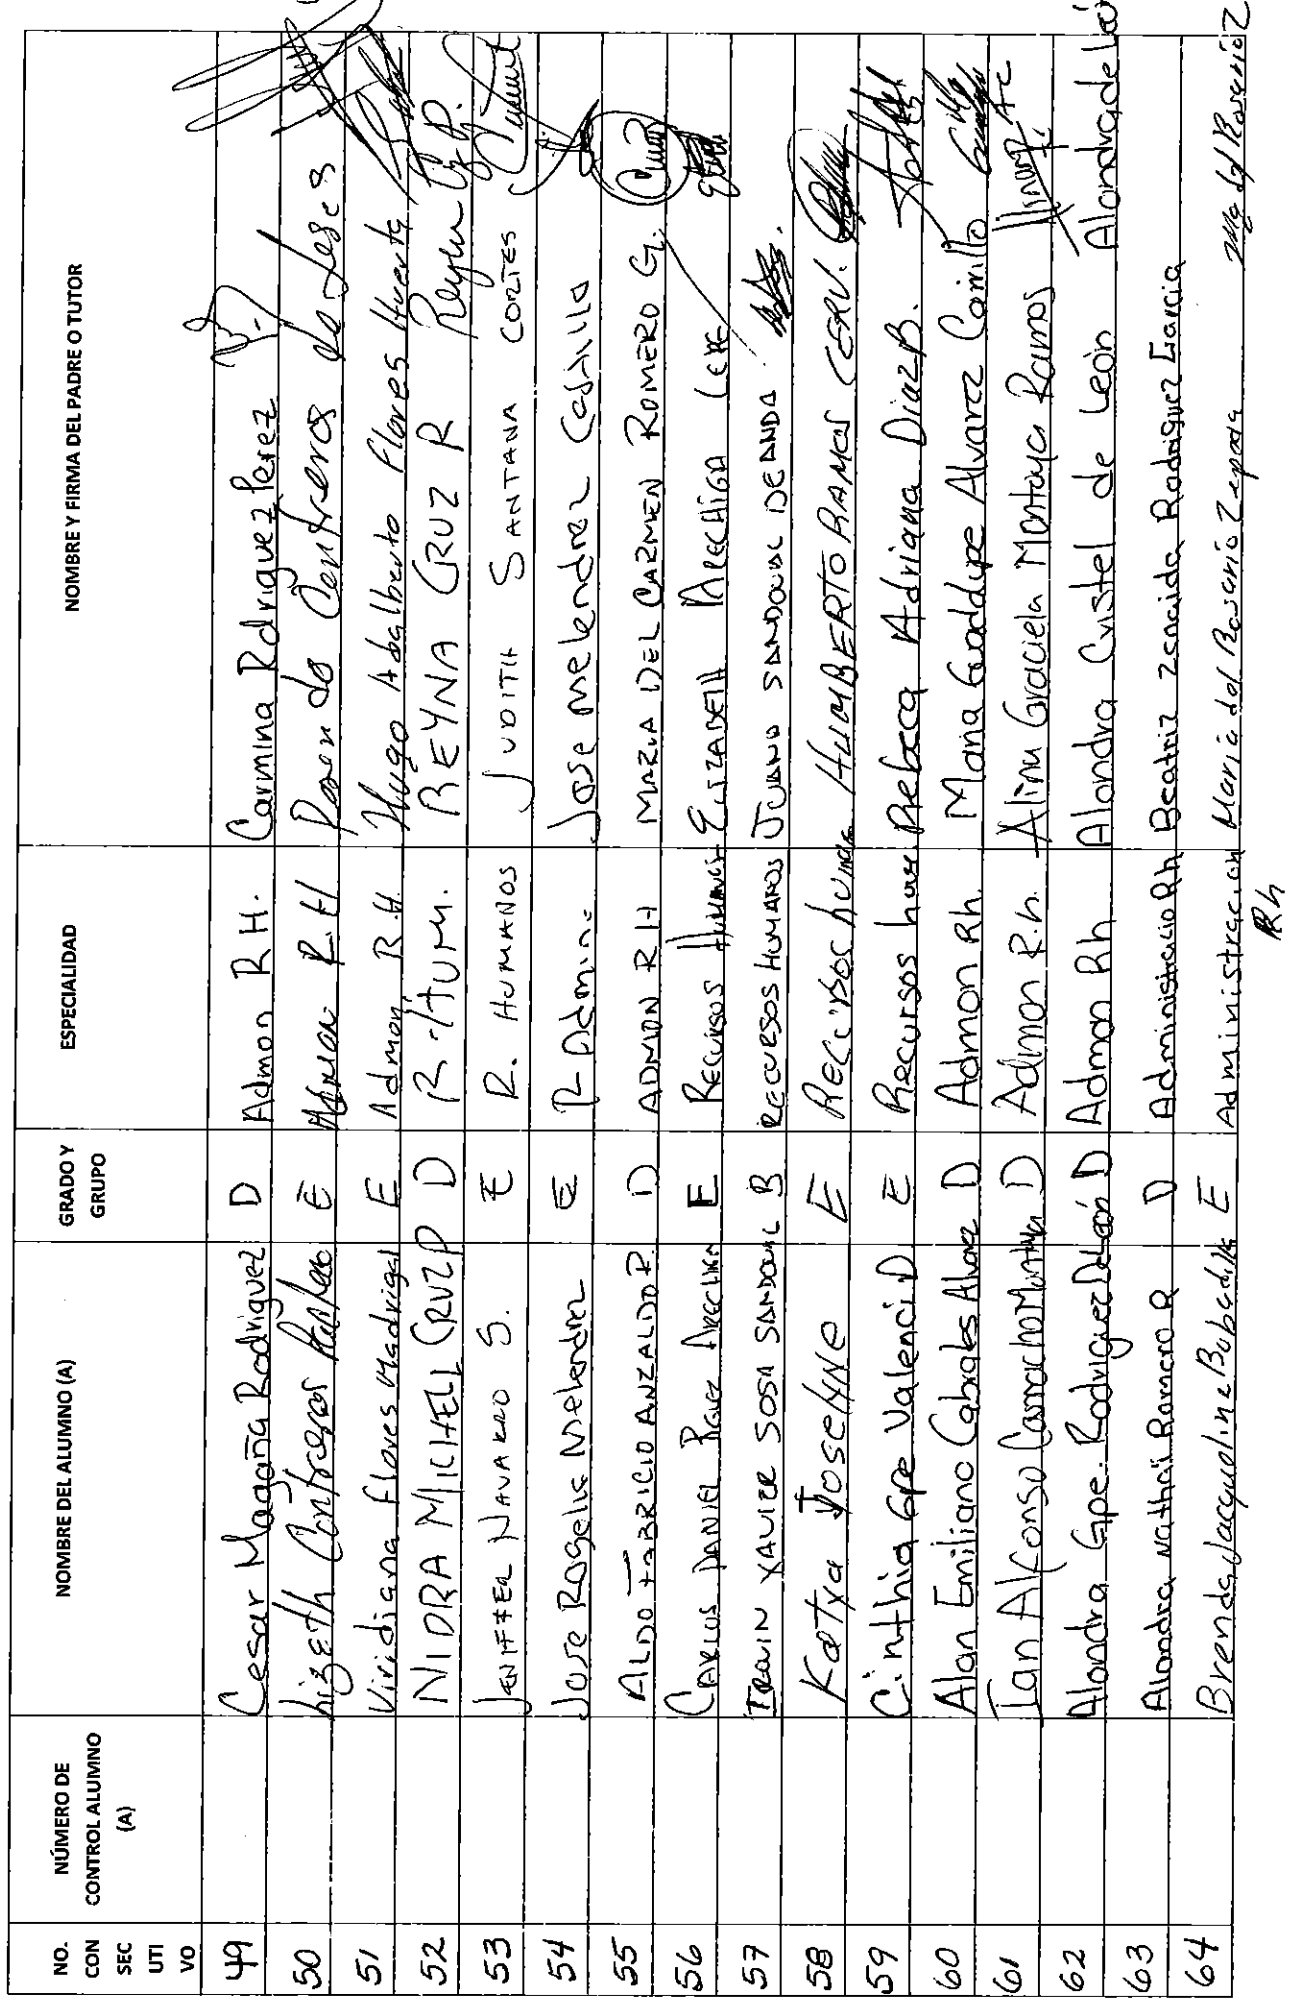 NO. CON SEC UTI VO NÚMERO DE CONTROL ALUMNO (A) NOMBRE DEL ALUMNO (A) GRADO Y GRUPO ESPECIALIDAD NOMBRE Y FIRMA DEL PADRE O TUTOR
49 Cesar Magaña Rodriguez D Admon R H. Carmina Rdriguez Perez
50 Lizeth Contreras E R.H Contreras
51 Viridiana Flores Madrigal E Admon R.H. Hugo Adalberto Flores Huerta
52 NIDRA MICHELL CRUZ P D R. Hum. REYNA CRUZ R Reyna
53 JENIFFER NAVARRO S. E R. HUMANOS JUDITH SANTANA CORTES
54 Jose Rogelio Melendrez E R Admin. Jose melendrez
55 ALDO FABRICIO ANZALDO R. D ADMON R H MARIA DEL CARMEN ROMERO G.
56 CARLOS DANIEL ARECHIGA E RECURSOS ELIZABETH ARECHIGA
57 XAVIER SOSA SANDOVAL B RECURSOS HUMANOS JUANA SANDOVAL DEANDA
58 Katya Joselyne E Recursos HUMBERTO RAMOS CERV.
59 Cinthia Gpe Valenci D E Recursos hum Rebeca Adriana Diaz B.
60 Alan Emiliano Cabrales Alvarez D Admon Rh. Maria Guadalupe Alvarez Carrillo
61 Ian Alfonso Camacho D Admon R.h. Graciela Montaya Ramos
62 Alondra Gpe. Rodriguez DeLeón D Admon Rh Alondra Cristel de León Alondra de León
63 Alondra Nathali Romero R D Administracio Rh Beatriz Zenaida Rodriguez Garcia
64 Brenda Jacqueline Bobadilla E Administracion Rh Maria del Rosario Zepeda Ma del Rosario Z